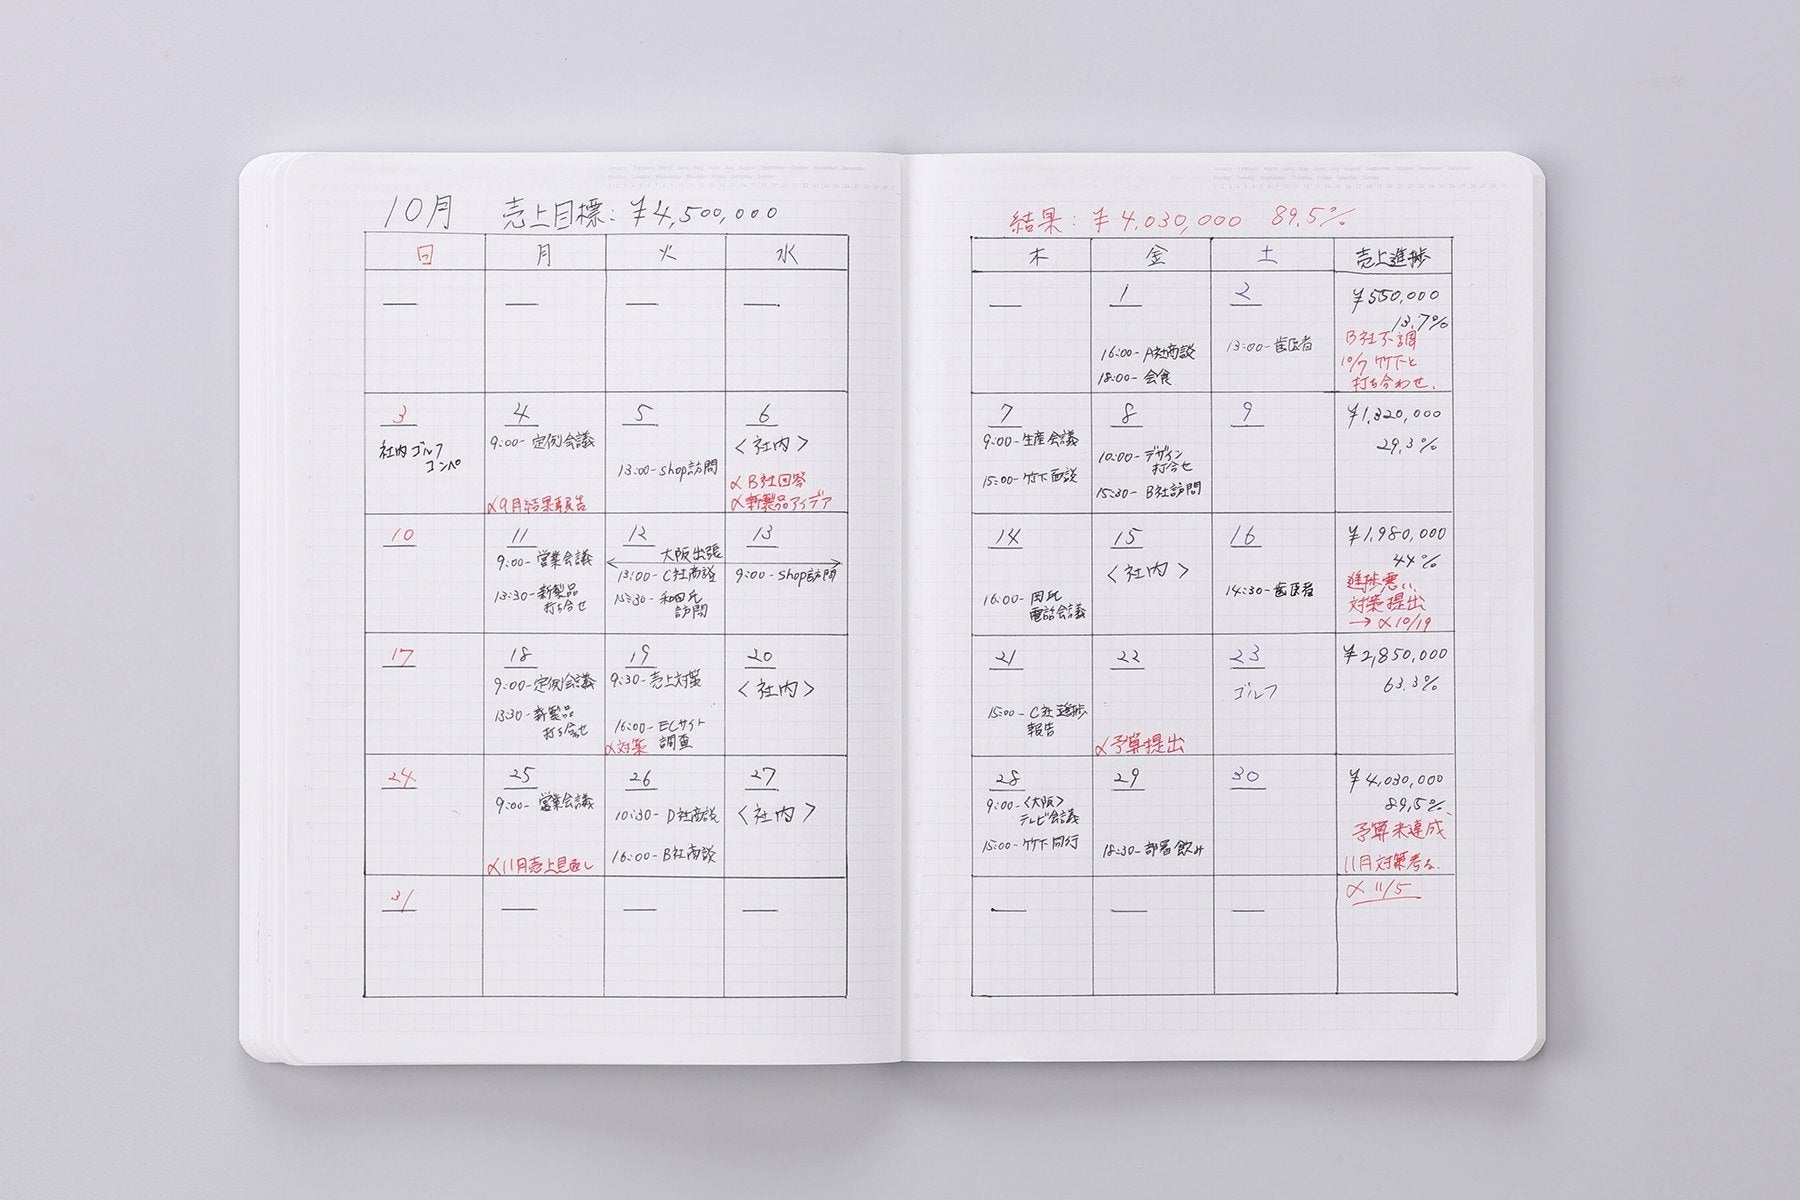 January February March April May June July August September October November December
Monday Tuesday Wednesday Thursday Friday Saturday Sunday
10月 売上目標：¥4,500,000
日 月 火 水
3
社内ゴルフ
コンペ
4
9:00- 定例会議
〆9月結果報告
5
13:00- shop訪問
6
<社内>
〆B社回答
〆新製品アイデア
10
11
9:00- 営業会議
13:30- 新製品
打ち合せ
12
大阪出張
13:00- C社商談
15:30- 和田氏
訪問
13
9:00- shop訪問
17
18
9:00- 定例会議
13:30- 新製品
打ち合せ
19
9:30- 売上対策
16:00- ECサイト
調査
〆対策
20
<社内>
24
25
9:00- 営業会議
〆11月売上見直し
26
10:30- D社商談
16:00- B社商談
27
<社内>
31
January February March April May June July August September October November December
Monday Tuesday Wednesday Thursday Friday Saturday Sunday
結果：¥4,030,000 89.5%
木 金 土 売上進捗
1
16:00- A社商談
18:00- 会食
2
13:00- 歯医者
¥550,000
13.7%
B社不調
10/7 竹下と
打ち合わせ、
7
9:00- 生産会議
15:00- 竹下面談
8
10:00- デザイン
打合せ
15:30- B社訪問
9
¥1,320,000
29.3%
14
16:00-
電話会議
15
<社内>
16
14:30- 歯医者
¥1,980,000
44%
進捗悪い、
対策提出
→〆10/19
21
15:00- C社進捗
報告
22
〆予算提出
23
ゴルフ
¥2,850,000
63.3%
28
9:00- <大阪>
テレビ会議
15:00- 竹下同行
29
18:30- 部署飲み
30
¥4,030,000
89.5%
予算未達成、
11月対策考る、
〆11/5